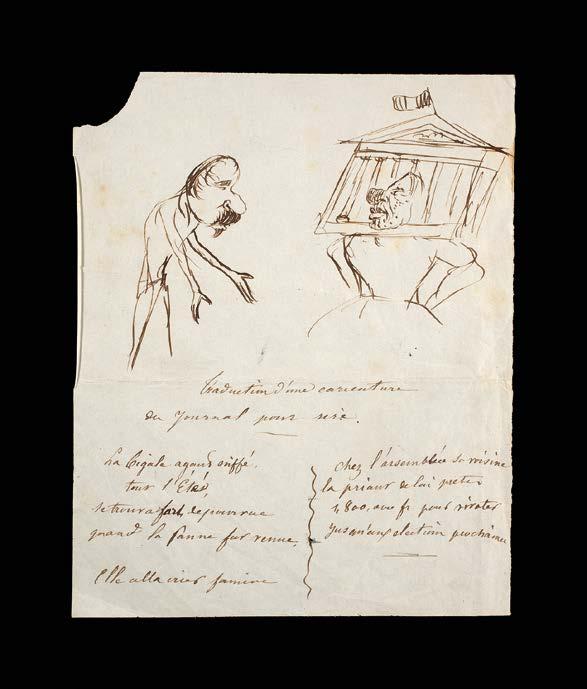 Traduction d'une caricature
du Journal pour rire.
La Cigale ayant sifflé,
tout l'Eté,
se trouva fort depourvue
quand la panne fut venue,
Elle alla crier famine
chez l'assemblée sa voisine
la priant de lui preter
1,800,000 fr pour
Jusqu'aux election prochaine